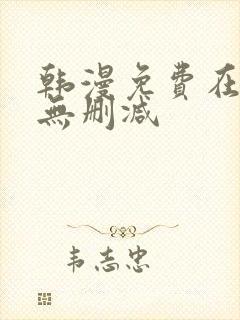 韩漫免費在
無删减
韦志忠